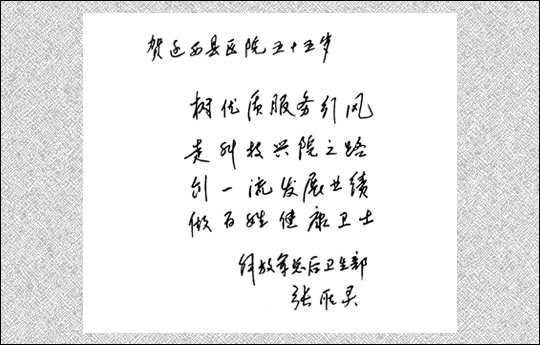 贺迁西县医院五十五岁
树优质服务新风
走科技兴院之路
创一流发展业绩
做百姓健康卫士
解放军总后卫生部
张雁灵